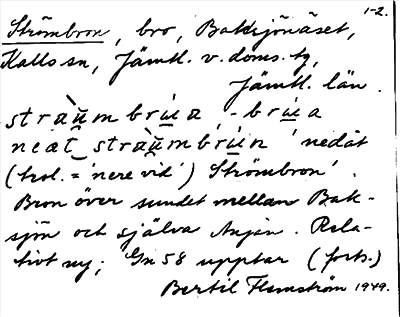 1-2.
Strömbron, bro, Baksjönäset,
Kalls sn, Jämtl. v. doms. tg,
Jämtl. län.
straùm brúa, -brúa
neat straùmbrún 'nedåt
(trol. = 'nere vid') Strömbron'.
Bron över sundet mellan Bak-
sjön och själva Anjan. Rela-
tivt ny; Gn 58 upptar (forts.)
Bertil Flemström 1949.